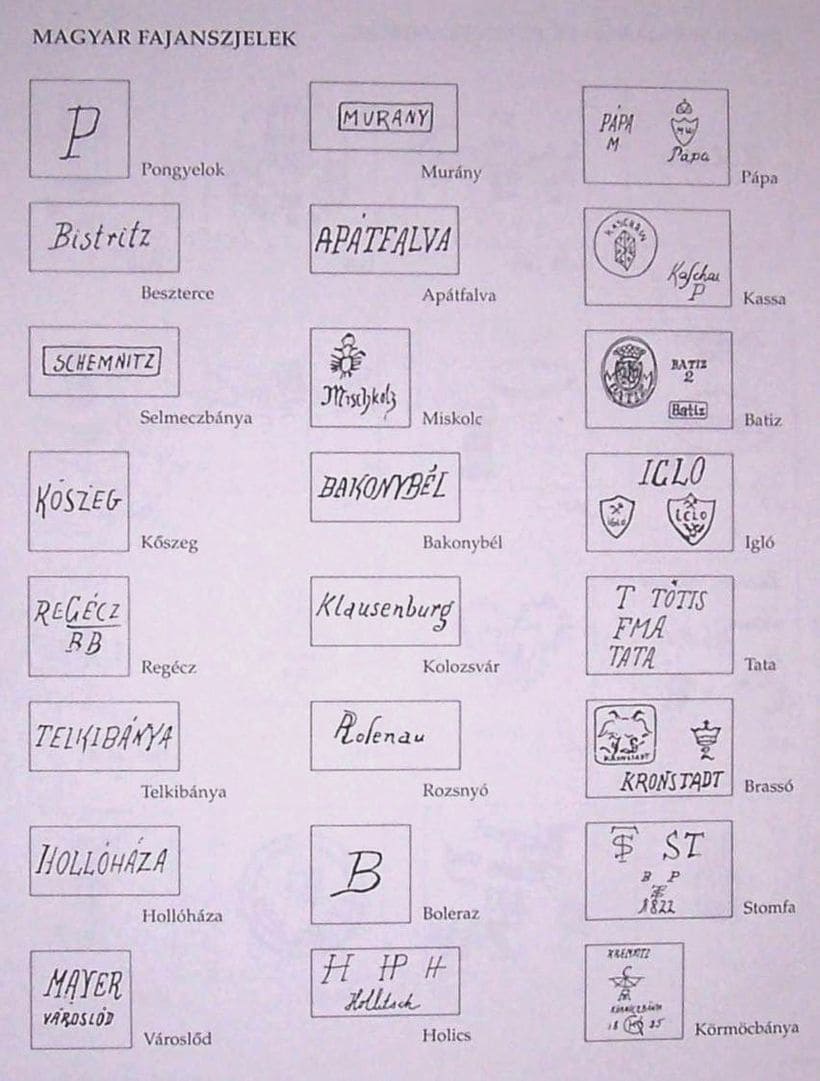 MAGYAR FAJANSZJELEK
P
Pongyelok
MURANY
Murány
PÁPA
M
MU
Pápa
Pápa
Bistritz
Beszterce
APÁTFALVA
Apátfalva
KASCHAU
Kaschau
P
Kassa
SCHEMNITZ
Selmeczbánya
Mischkolz
Miskolc
BATIZ
BATIZ
2
Batiz
Batiz
KŐSZEG
Kőszeg
BAKONYBÉL
Bakonybél
IGLO
IGLO
IGLO
Igló
REGÉCZ
BB
Regécz
Klausenburg
Kolozsvár
T TÓTIS
FMA
TATA
Tata
TELKIBÁNYA
Telkibánya
Rosenau
Rozsnyó
KRONSTADT
2
KRONSTADT
Brassó
HOLLÓHÁZA
Hollóháza
B
Boleraz
TS ST
B P
1822
Stomfa
MAYER
VÁROSLŐD
Városlőd
H HP H
Hollitsch
Holics
KREMNITZ
KÖRMÖCZBÁNYA
Körmöcbánya